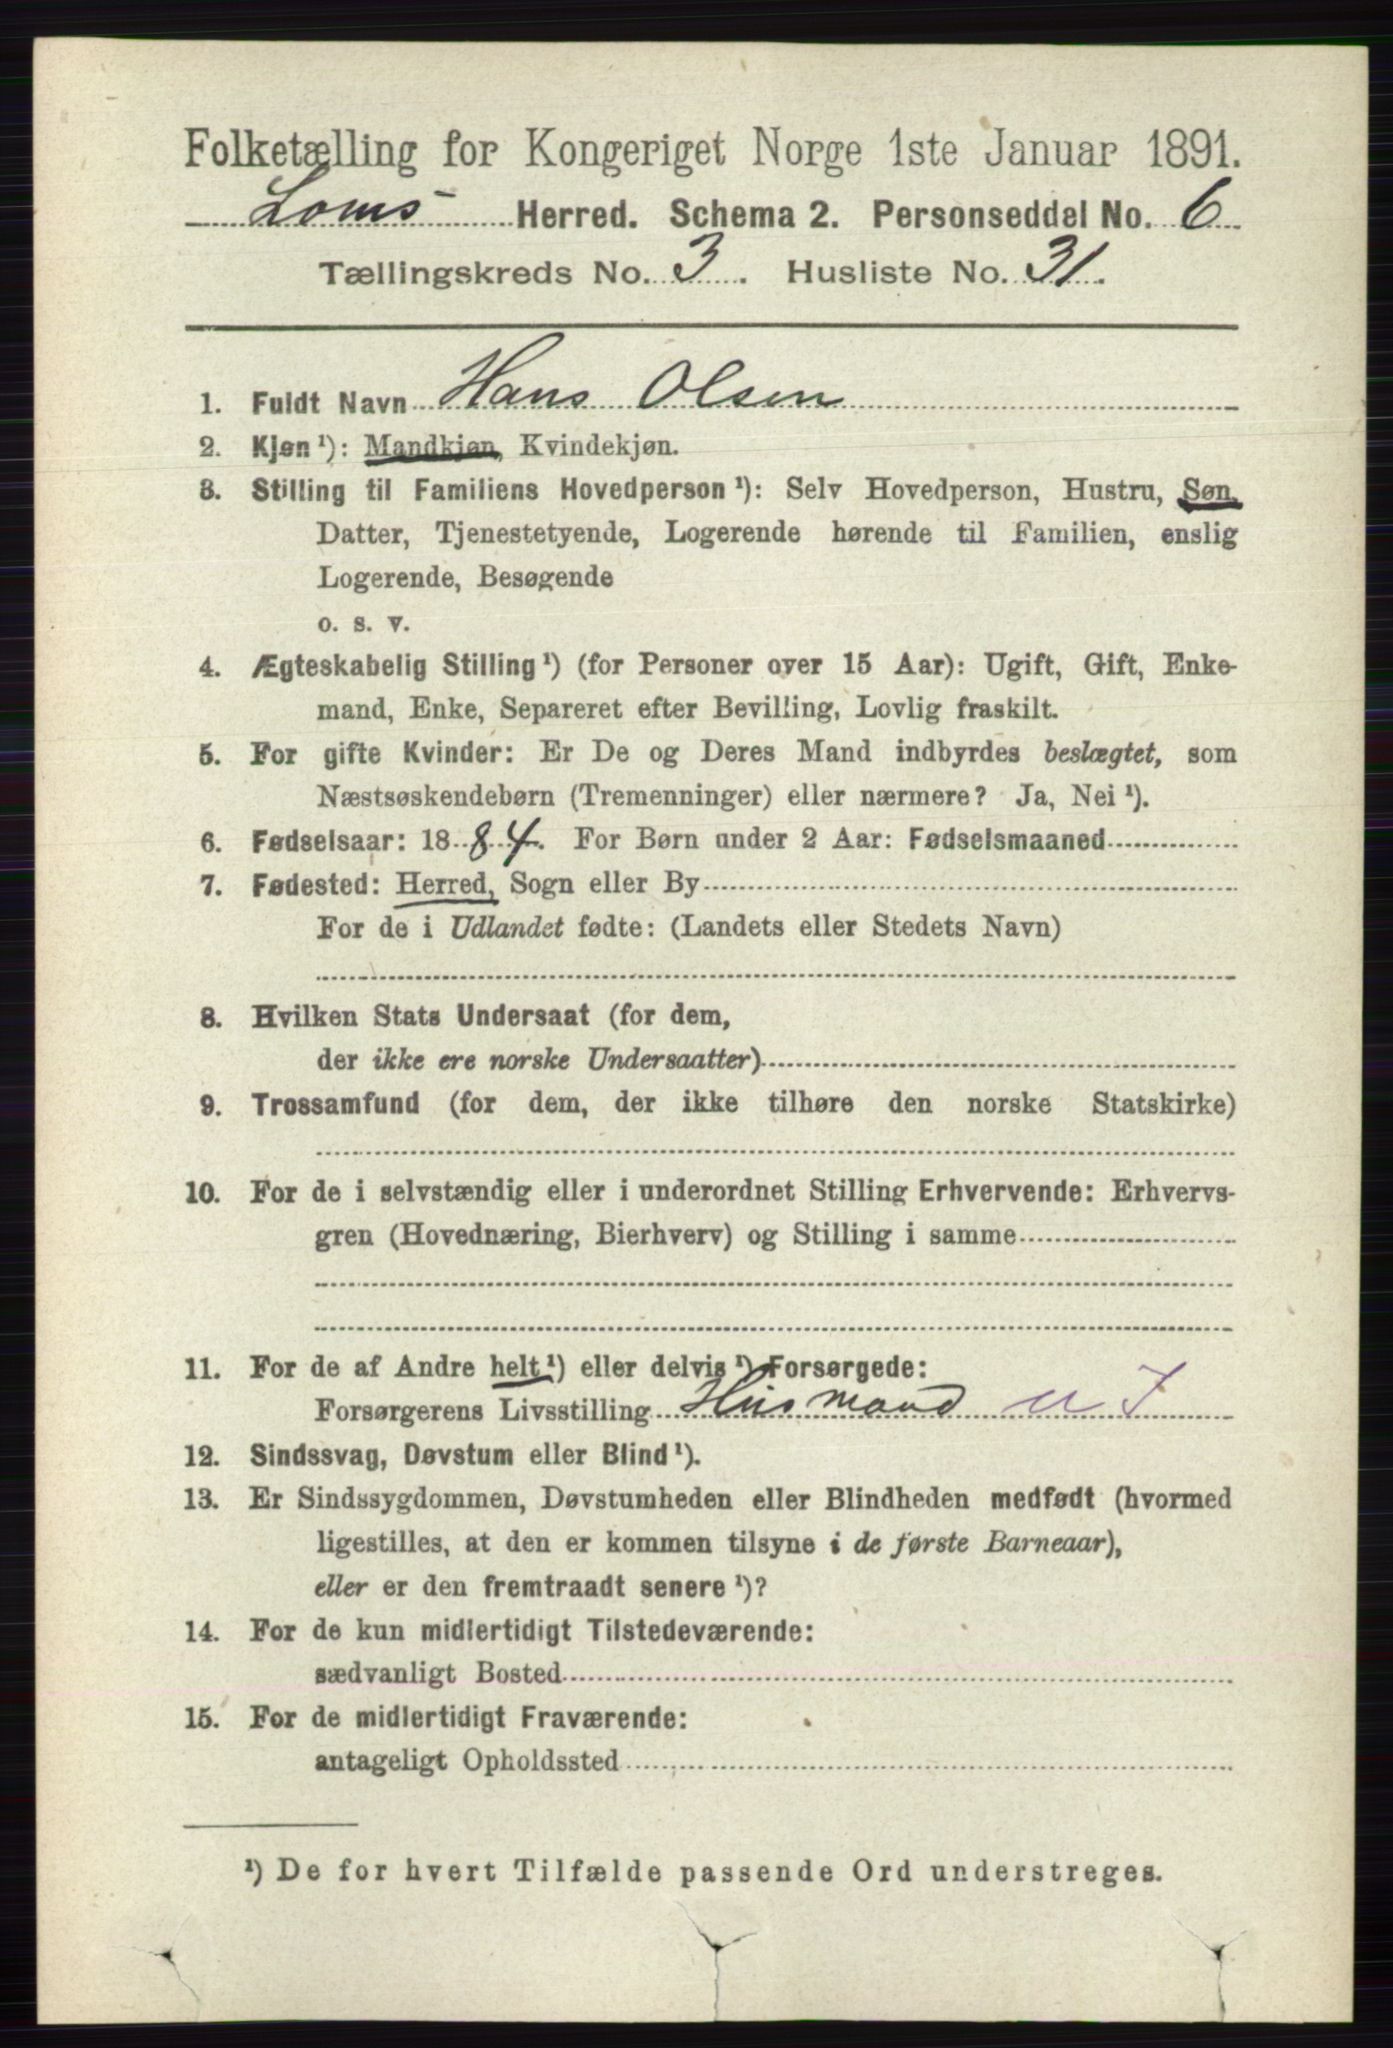 Folketælling for Kongeriget Norge 1ste Januar 1891.
Loms Herred. Schema 2. Personseddel No. 6
Tællingskreds No. 3. Husliste No. 31.
1. Fuldt Navn Hans Olsen
2. Kjøn ¹): Mandkjøn, Kvindekjøn.
3. Stilling til Familiens Hovedperson ¹): Selv Hovedperson, Hustru, Søn,
Datter, Tjenestetyende, Logerende hørende til Familien, enslig
Logerende, Besøgende
o. s. v.
4. Ægteskabelig Stilling ¹) (for Personer over 15 Aar): Ugift, Gift, Enke-
mand, Enke, Separeret efter Bevilling, Lovlig fraskilt.
5. For gifte Kvinder: Er De og Deres Mand indbyrdes beslægtet, som
Næstsøskendebørn (Tremenninger) eller nærmere? Ja, Nei ¹).
6. Fødselsaar: 1884. For Børn under 2 Aar: Fødselsmaaned
7. Fødested: Herred, Sogn eller By
For de i Udlandet fødte: (Landets eller Stedets Navn)
8. Hvilken Stats Undersaat (for dem,
der ikke ere norske Undersaatter)
9. Trossamfund (for dem, der ikke tilhøre den norske Statskirke)
10. For de i selvstændig eller i underordnet Stilling Erhvervende: Erhvervs-
gren (Hovednæring, Bierhverv) og Stilling i samme
11. For de af Andre helt ¹) eller delvis ¹) Forsørgede:
Forsørgerens Livsstilling Husmand
12. Sindssvag, Døvstum eller Blind ¹).
13. Er Sindssygdommen, Døvstumheden eller Blindheden medfødt (hvormed
ligestilles, at den er kommen tilsyne i de første Barneaar),
eller er den fremtraadt senere ¹)?
14. For de kun midlertidigt Tilstedeværende:
sædvanligt Bosted
15. For de midlertidigt Fraværende:
antageligt Opholdssted
¹) De for hvert Tilfælde passende Ord understreges.